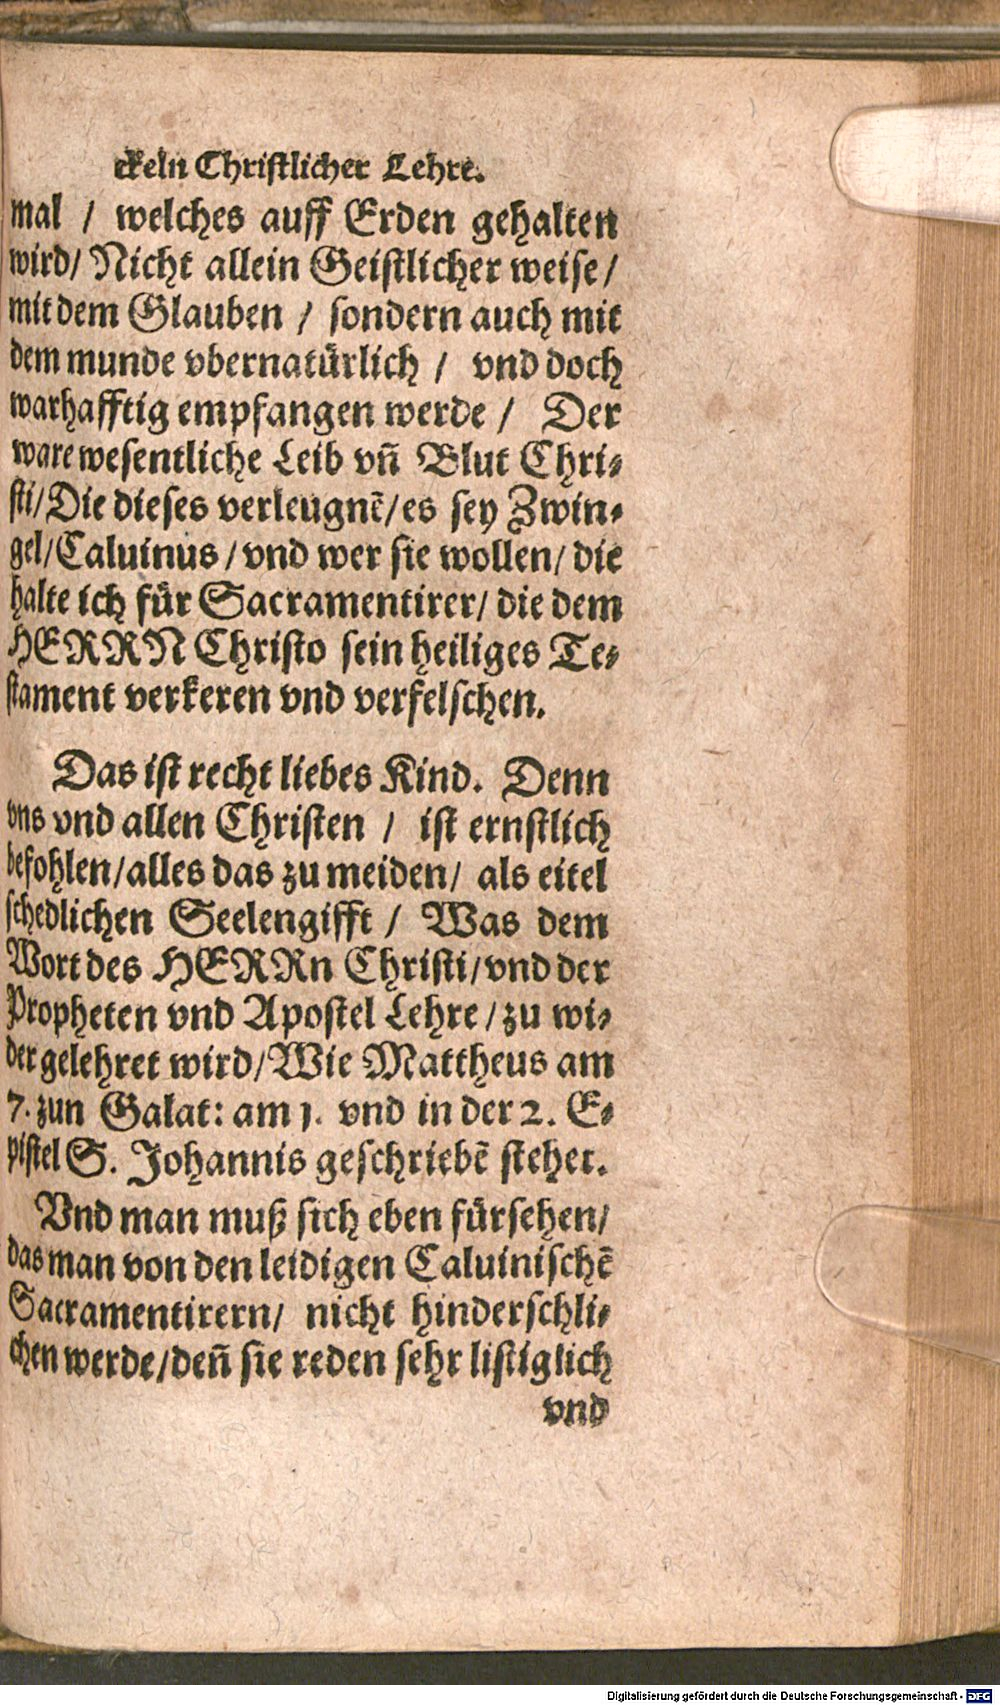 ckeln Christlicher Lehre.
mal / welches auff Erden gehalten
wird/ Nicht allein Geistlicher weise/
mit dem Glauben / sondern auch mit
dem munde vbernatürlich / vnd doch
warhafftig empfangen werde / Der
ware wesentliche Leib vn̄ Blut Chri⸗
sti/Die dieses verleugnē/es sey Zwin⸗
gel/Caluinus/vnd wer sie wollen/ die
halte ich für Sacramentirer/ die dem
HERRN Christo sein heiliges Te⸗
stament verkeren vnd verfelschen.
Das ist recht liebes Kind. Denn
vns vnd allen Christen / ist ernstlich
befohlen/alles das zu meiden/ als eitel
schedlichen Seelengifft / Was dem
Wort des HERRn Christi/vnd der
Propheten vnd Apostel Lehre/zu wi⸗
der gelehret wird/Wie Mattheus am
7. zun Galat: am 1. vnd in der 2. E⸗
pistel S. Johannis geschriebē stehet.
Vnd man muß sich eben fürsehen/
das man von den leidigen Caluinischē
Sacramentirern/ nicht hinderschli⸗
chen werde/den̄ sie reden sehr listiglich
vnd
Digitalisierung gefördert durch die Deutsche Forschungsgemeinschaft - DFG